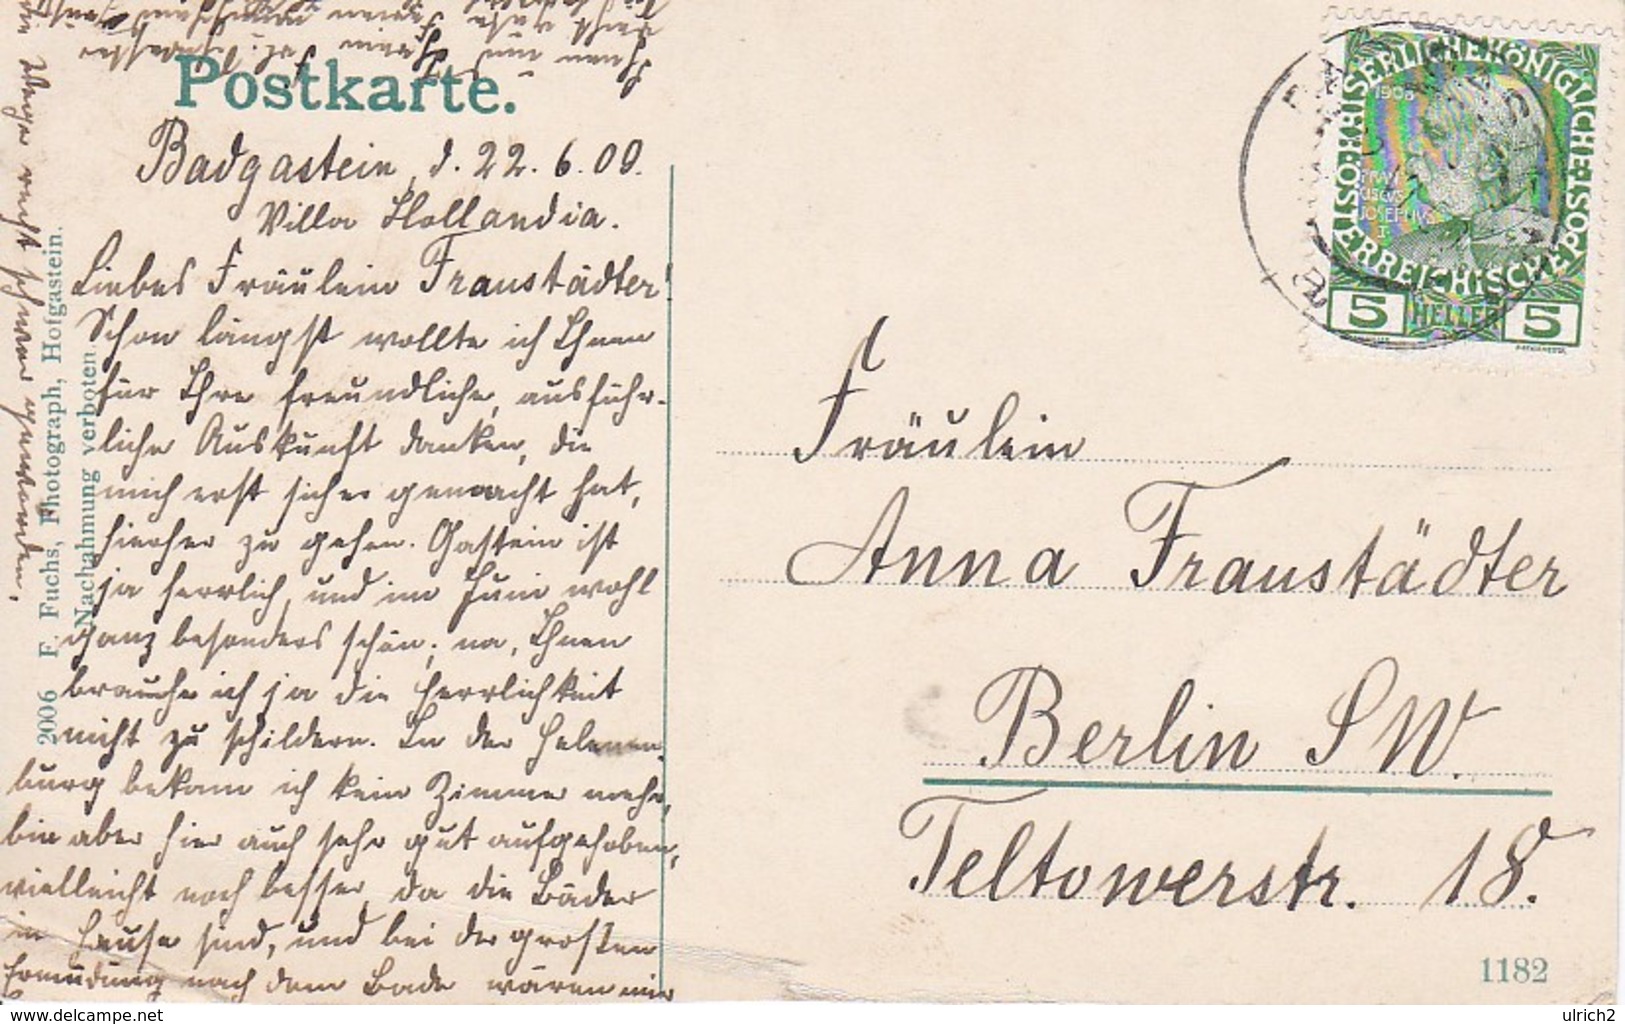 Postkarte.
Badgastein, d. 22. 6. 09.
Villa Hollandia.
Liebes Fräulein Fraustädter!
Schon längst wollte ich Ihnen
für Ihre freundliche, ausführ-
liche Auskunft danken, die
mich erst sicher gemacht hat,
hierher zu gehen. Gastein ist
ja herrlich, und im Juni wohl
ganz besonders schön; na, Ihnen
brauche ich ja die Herrlichkeit
nicht zu schildern. In der Helenen-
burg bekam ich kein Zimmer mehr,
bin aber hier auch sehr gut aufgehoben,
vielleicht noch besser, da die Bäder
im Hause sind, und bei der grossen
Ermüdung nach dem Bade wären mir
die Wege recht schwer geworden.
2006 F. Fuchs, Photograph, Hofgastein.
Nachahmung verboten
KAISERLICHE KÖNIGLICHE ÖSTERREICHISCHE POST
1908
JOSEPHVS
I
5 HELLER 5
Fräulein
Anna Fraustädter
Berlin SW.
Teltowerstr. 18.
1182
www.delcampe.net
ulrich2